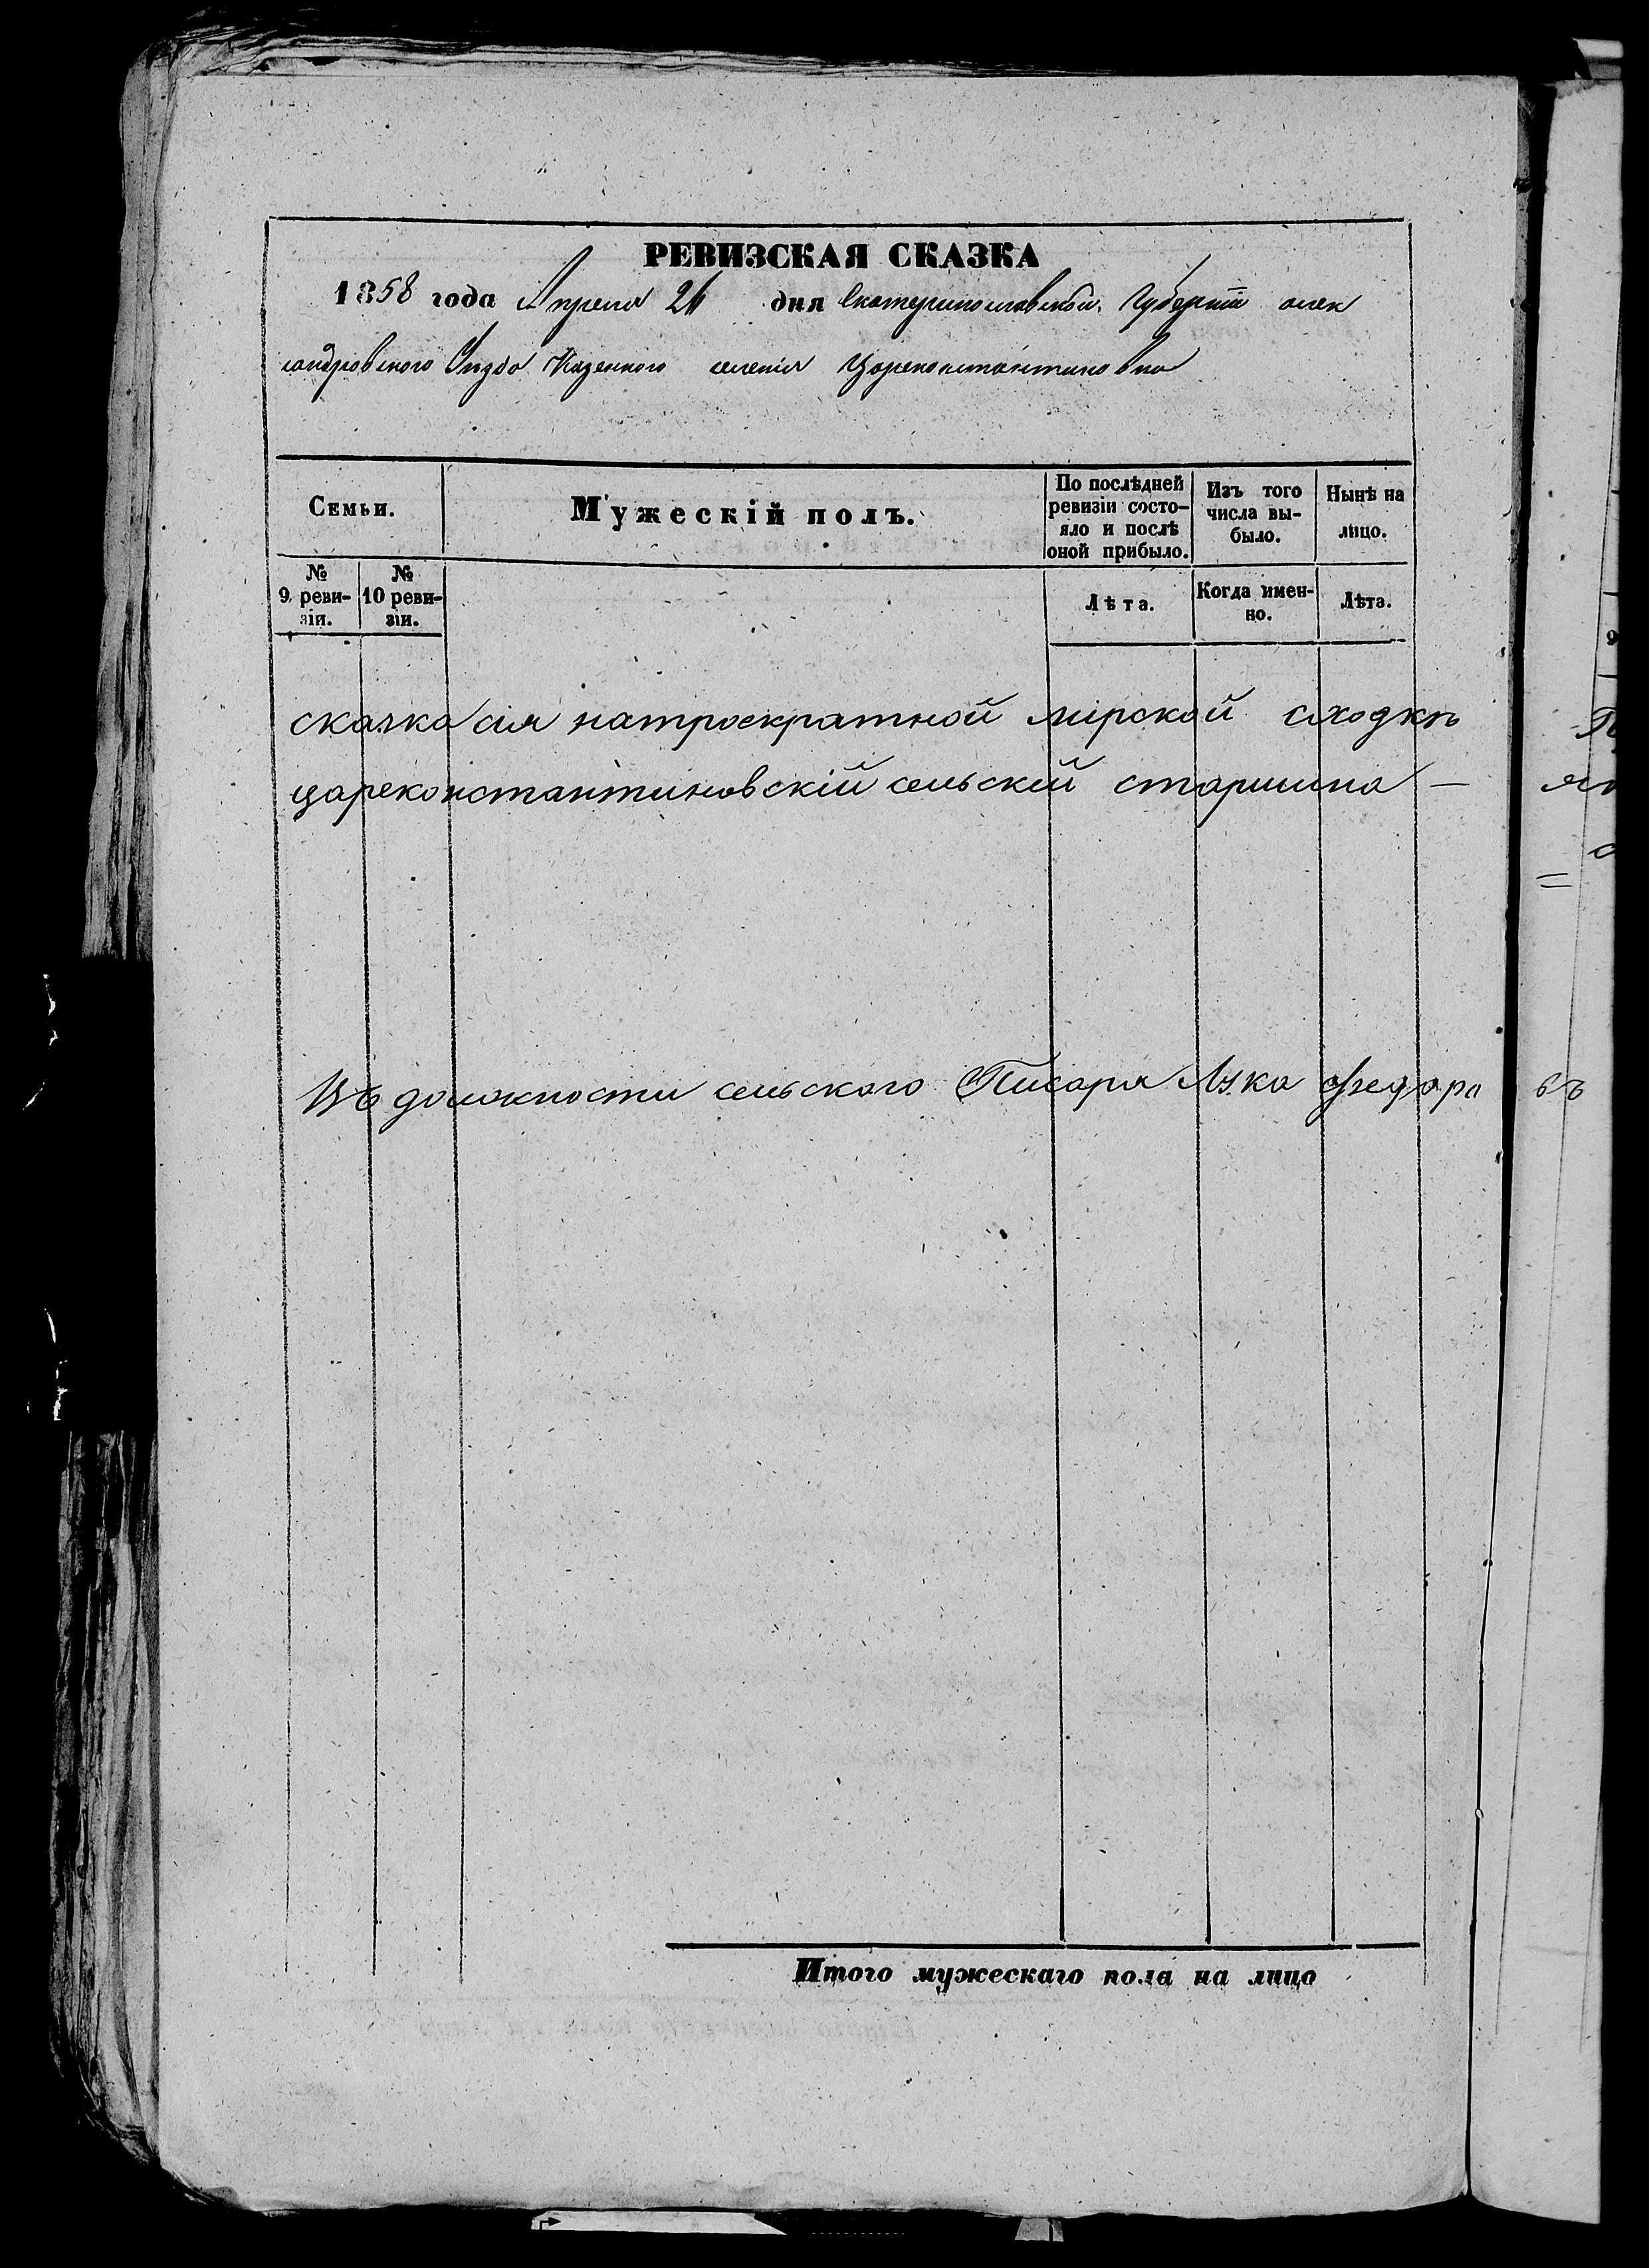 РЕВИЗСКАЯ СКАЗКА
1858 года Апреля 26 дня Екатеринославской Губерніи алек
сандровского Уѣзда Казенного селенія Цареконстантиновка
Семьи.
Мужескій полъ.
По послѣдней
ревизіи состо-
яло и послѣ
оной прибыло.
Изъ того
числа вы-
было.
Нынѣ на
лицо.
№
9 реви-
зіи.
№
10 реви-
зіи.
Лѣта.
Когда имен-
но.
Лѣта.
скаска сія натроекратной мірской сходкѣ
цареконстантиновскій сельскій старшина —
Въ должности сельского Писаря федора
Итого мужескаго пола на лицо
въ